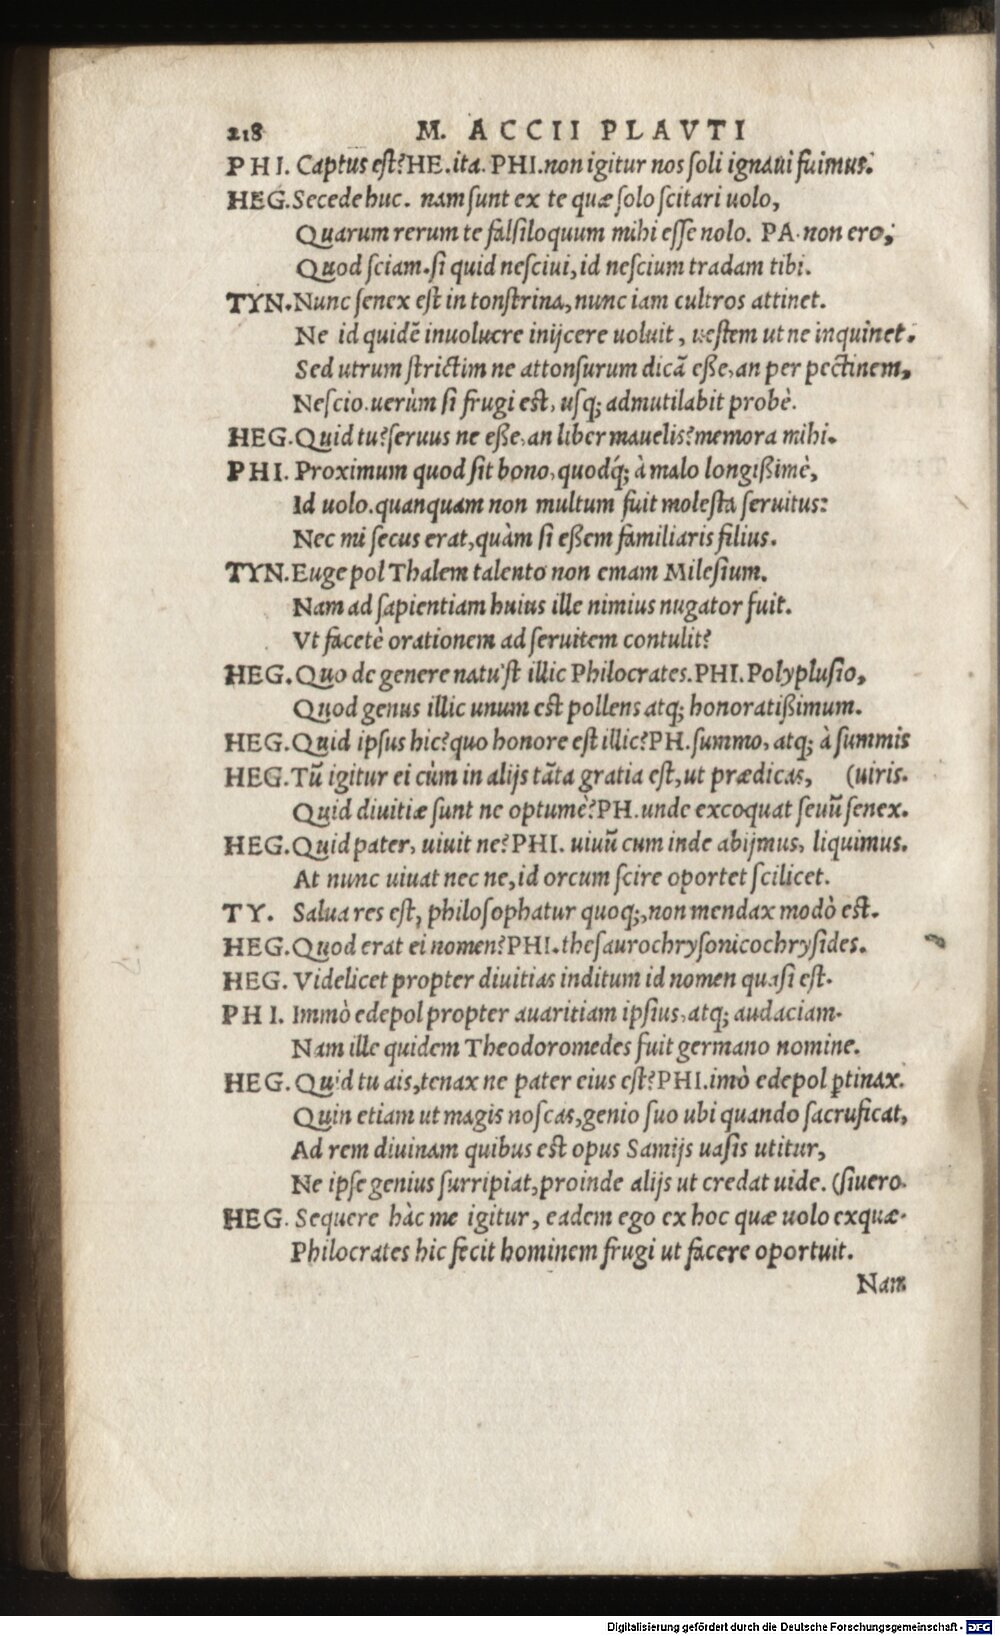 218 M. ACCII PLAVTI
PHI. Captus est? HE. ita. PHI. non igitur nos soli ignaui fuimus.
HEG. Secede huc. nam sunt ex te quæ solo scitari uolo,
Quarum rerum te falsiloquum mihi esse nolo. PA. non ero,
Quod sciam. si quid nesciui, id nescium tradam tibi.
TYN. Nunc senex est in tonstrina, nunc iam cultros attinet.
Ne id quidē inuolucre inijcere uoluit, uestem ut ne inquinet.
Sed utrum strictim ne attonsurum dicā eße, an per pectinem,
Nescio. uerùm si frugi est, usq; admutilabit probè.
HEG. Quid tu? seruus ne eße, an liber mauelis? memora mihi.
PHI. Proximum quod sit bono, quodq́; à malo longißimè,
Id uolo. quanquam non multum fuit molesta seruitus:
Nec mi secus erat, quàm si eßem familiaris filius.
TYN. Euge pol Thalem talento non emam Milesium.
Nam ad sapientiam huius ille nimius nugator fuit.
Vt facetè orationem ad seruitem contulit?
HEG. Quo de genere natu'st illic Philocrates. PHI. Polyplusio,
Quod genus illic unum est pollens atq; honoratißimum.
HEG. Quid ipsus hic? quo honore est illic? PH. summo, atq; à summis
HEG. Tū igitur ei cùm in alijs tāta gratia est, ut prædicas, (uiris.
Quid diuitiæ sunt ne optumè? PH. unde excoquat seuū senex.
HEG. Quid pater, uiuit ne? PHI. uiuū cum inde abijmus, liquimus.
At nunc uiuat nec ne, id orcum scire oportet scilicet.
TY. Salua res est, philosophatur quoq;, non mendax modò est.
HEG. Quod erat ei nomen? PHI. thesaurochrysonicochrysides.
HEG. Videlicet propter diuitias inditum id nomen quasi est.
PHI. Immò edepol propter auaritiam ipsius, atq; audaciam.
Nam ille quidem Theodoromedes fuit germano nomine.
HEG. Quid tu ais, tenax ne pater eius est? PHI. imò edepol ꝑtinax.
Quin etiam ut magis noscas, genio suo ubi quando sacruficat,
Ad rem diuinam quibus est opus Samijs uasis utitur,
Ne ipse genius surripiat, proinde alijs ut credat uide. (siuero.
HEG. Sequere hàc me igitur, eadem ego ex hoc quæ uolo exquæ-
Philocrates hic fecit hominem frugi ut facere oportuit.
Nam
Digitalisierung gefördert durch die Deutsche Forschungsgemeinschaft - DFG